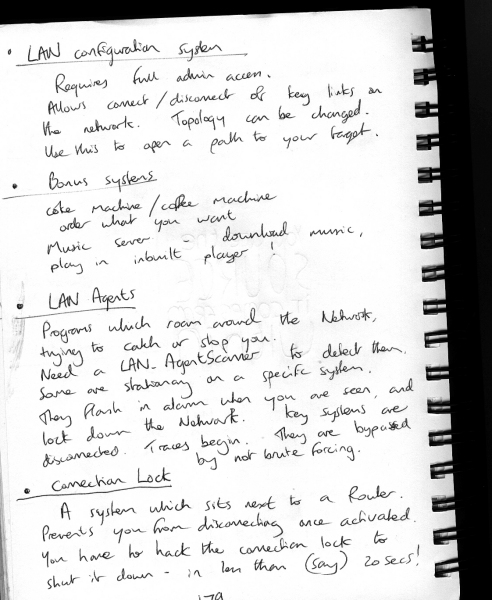 • LAN configuration system
Requires full admin access.
Allows connect/disconnect of key links on
the network. Topology can be changed.
Use this to open a path to your target.
• Bonus systems
coke machine/coffee machine
order what you want
Music server - download music,
play in inbuilt player!
• LAN Agents
Programs which roam around the Network,
trying to catch or stop you.
Need a LAN-AgentScanner to detect them.
Some are stationary on a specific system.
They flash in alarm when you are seen, and
lock down the Network. Key systems are
disconnected. Traces begin. They are bypassed
by not brute forcing.
• Connection Lock
A system which sits next to a Router.
Prevents you from disconnecting once activated.
You have to hack the connection lock to
shut it down - in less than (say) 20 secs!
179